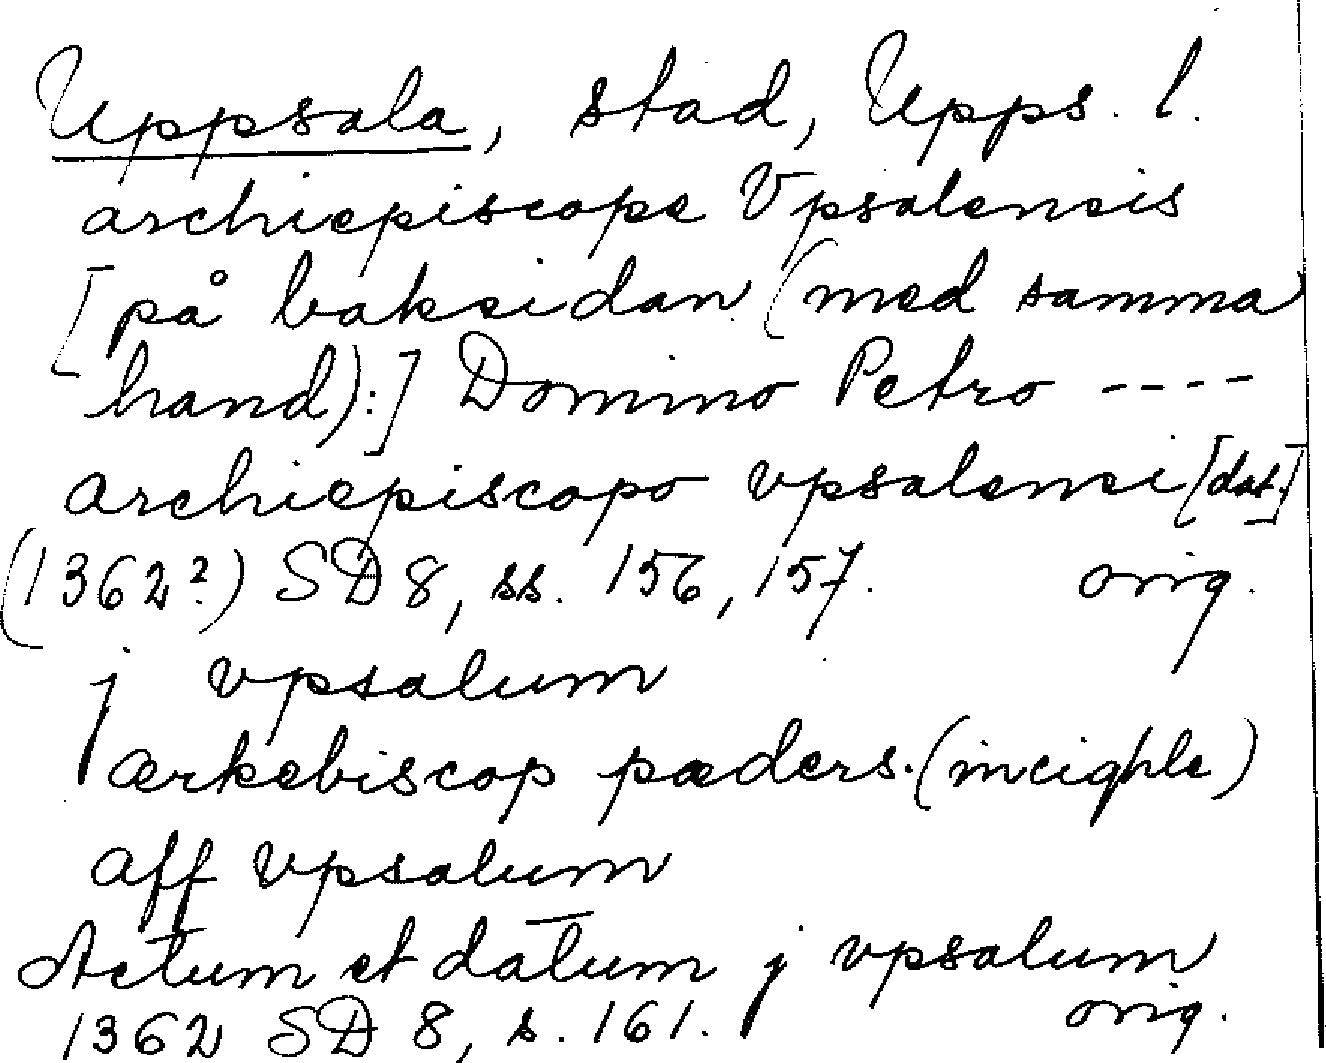 Uppsala, stad, Upps. l.
archiepiscope Vpsalensis
[på baksidan (med samma
hand):] Domino Petro ----
archiepiscopo vpsalensi [dat.]
(1362?) SD 8, ss. 156, 157. orig.
j vpsalum
ærkebiscop pæders. (incighle)
aff vpsalum
Actum et datum j vpsalum
1362 SD 8, s. 161. orig.